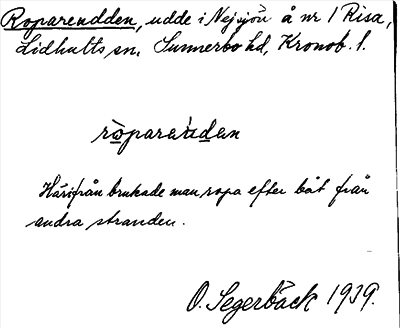 Roparendden, udde i Nejsjön å nr 1 Risa,
Lidhults sn. Sunnerbo hd, Kronob. l.
roparendan
Härifrån brukade man ropa efter båt från
andra stranden.
O. Segerbäck 1939.